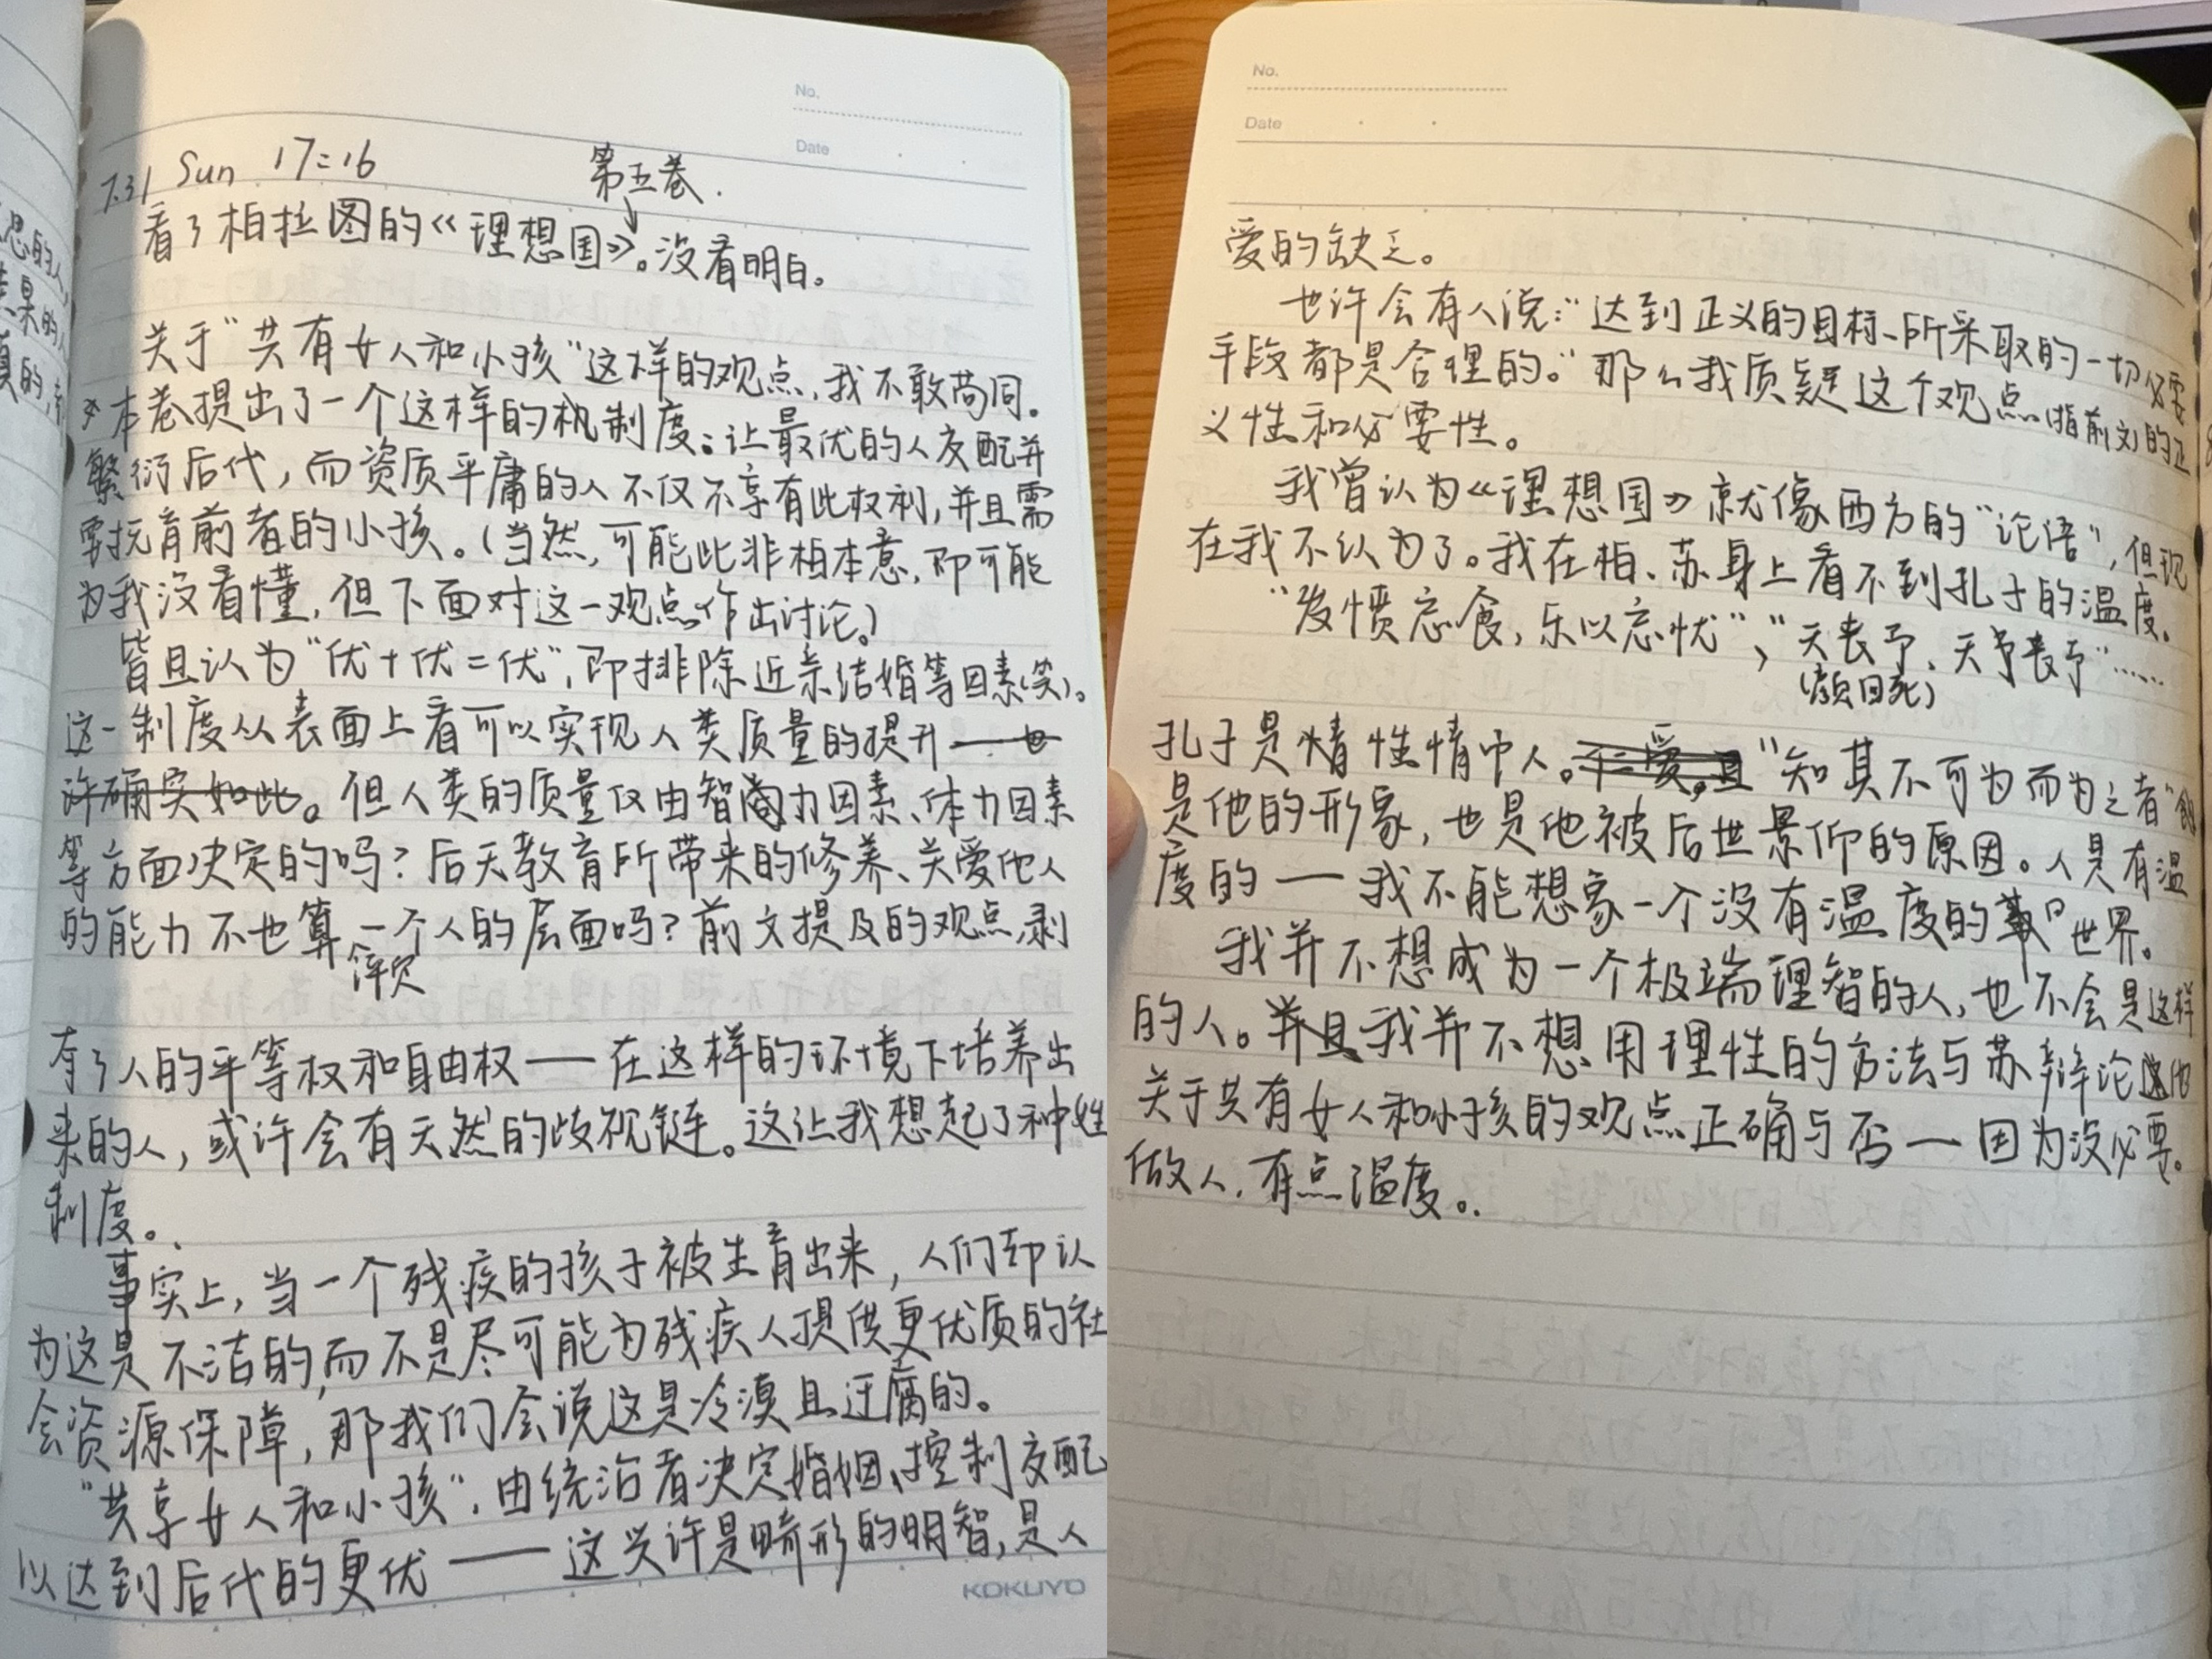 No.
Date
7.31 Sun 17:16
第五卷.
看了柏拉图的《理想国》。没看明白。
关于"共有女人和小孩"这样的观点,我不敢苟同。
本卷提出了一个这样的机制度:让最优的人交配并
繁衍后代,而资质平庸的人不仅不享有此权利,并且需
要抚育前者的小孩。(当然,可能此非柏本意,即可能
为我没看懂,但下面对这一观点作出讨论。)
皆且认为"优+优=优",即排除近亲结婚等因素(笑)。
这一制度从表面上看可以实现人类质量的提升——也
许确实如此。但人类的质量仅由智力因素、体力因素
等方面决定的吗?后天教育所带来的修养、关爱他人
的能力不也算一个人的层面吗?前文提及的观点,剥
有了人的平等权和自由权——在这样的环境下培养出
来的人,或许会有天然的歧视链。这让我想起了种姓
制度。
事实上,当一个残疾的孩子被生育出来,人们却认
为这是不洁的,而不是尽可能为残疾人提供更优质的社
会资源保障,那我们会说这是冷漠且迂腐的。
"共享女人和小孩",由统治者决定婚姻、控制交配
以达到后代的更优——这兴许是畸形的明智,是人
KOKUYO
No.
Date
爱的缺乏。
也许会有人说:"达到正义的目标所采取的一切必要
手段都是合理的。"那么我质疑这个观点(指前文)的正
义性和必要性。
我曾认为《理想国》就像西方的"论语",但现
在我不认为了。我在柏、苏身上看不到孔子的温度。
"发愤忘食,乐以忘忧"、"天丧予,天予丧予"……
(颜回死)
孔子是情性情中人。"知其不可为而为之者"
是他的形象,也是他被后世景仰的原因。人是有温
度的——我不能想象一个没有温度的世界。
我并不想成为一个极端理智的人,也不会是这样
的人。并且我并不想用理性的方法与苏辩论
关于共有女人和小孩的观点正确与否——因为没必要。
做人,有点温度。